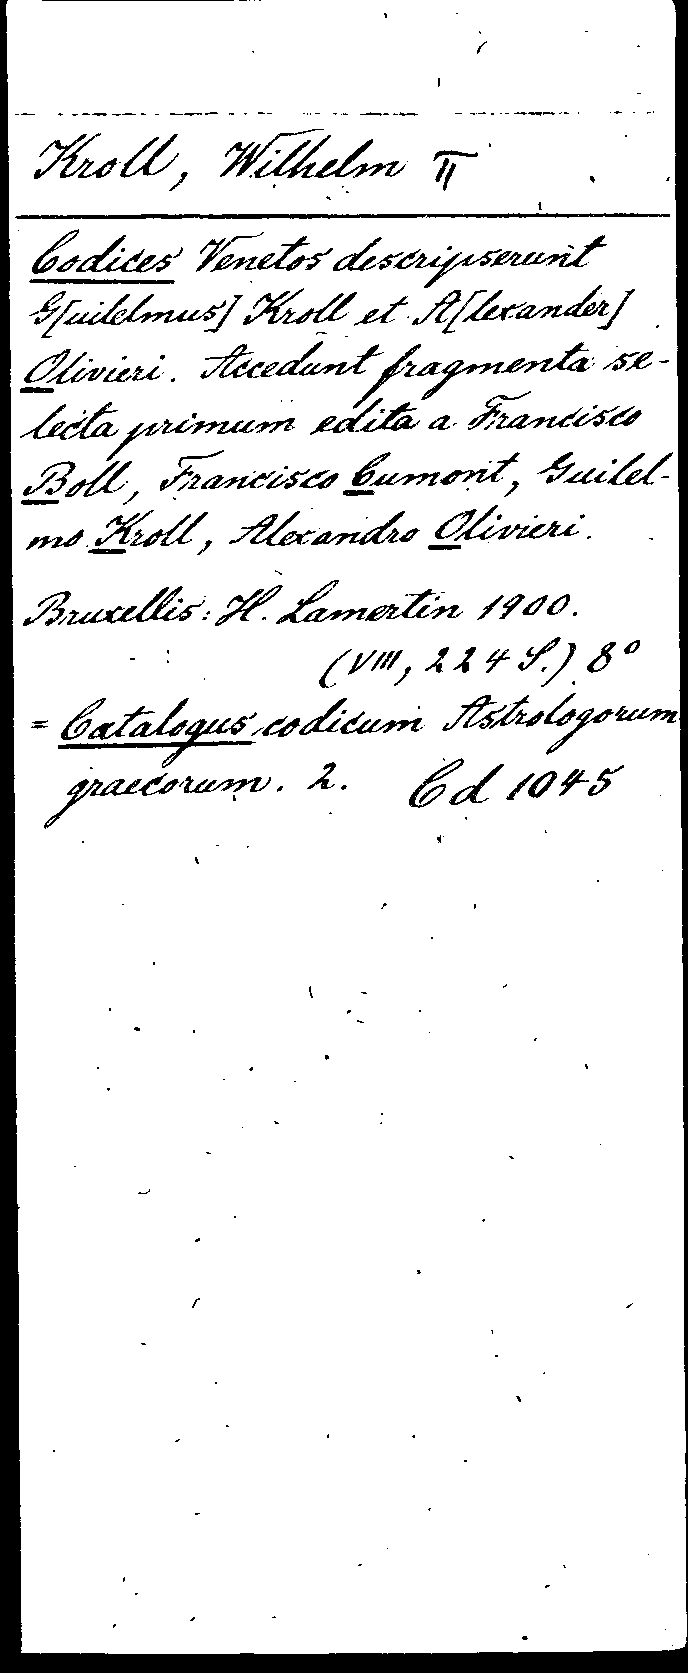 Kroll, Wilhelm II
Codices Venetos descripserunt
G[uilelmus] Kroll et A[lexander]
Olivieri. Accedunt fragmenta se-
lecta primum edita a Francisco
Boll, Francisco Cumont, Guilel-
mo Kroll, Alexandro Olivieri.
Bruxellis: H. Lamertin 1900.
(VIII, 224 S.) 8°
= Catalogus codicum Astrologorum
graecorum. 2. Cd 1045